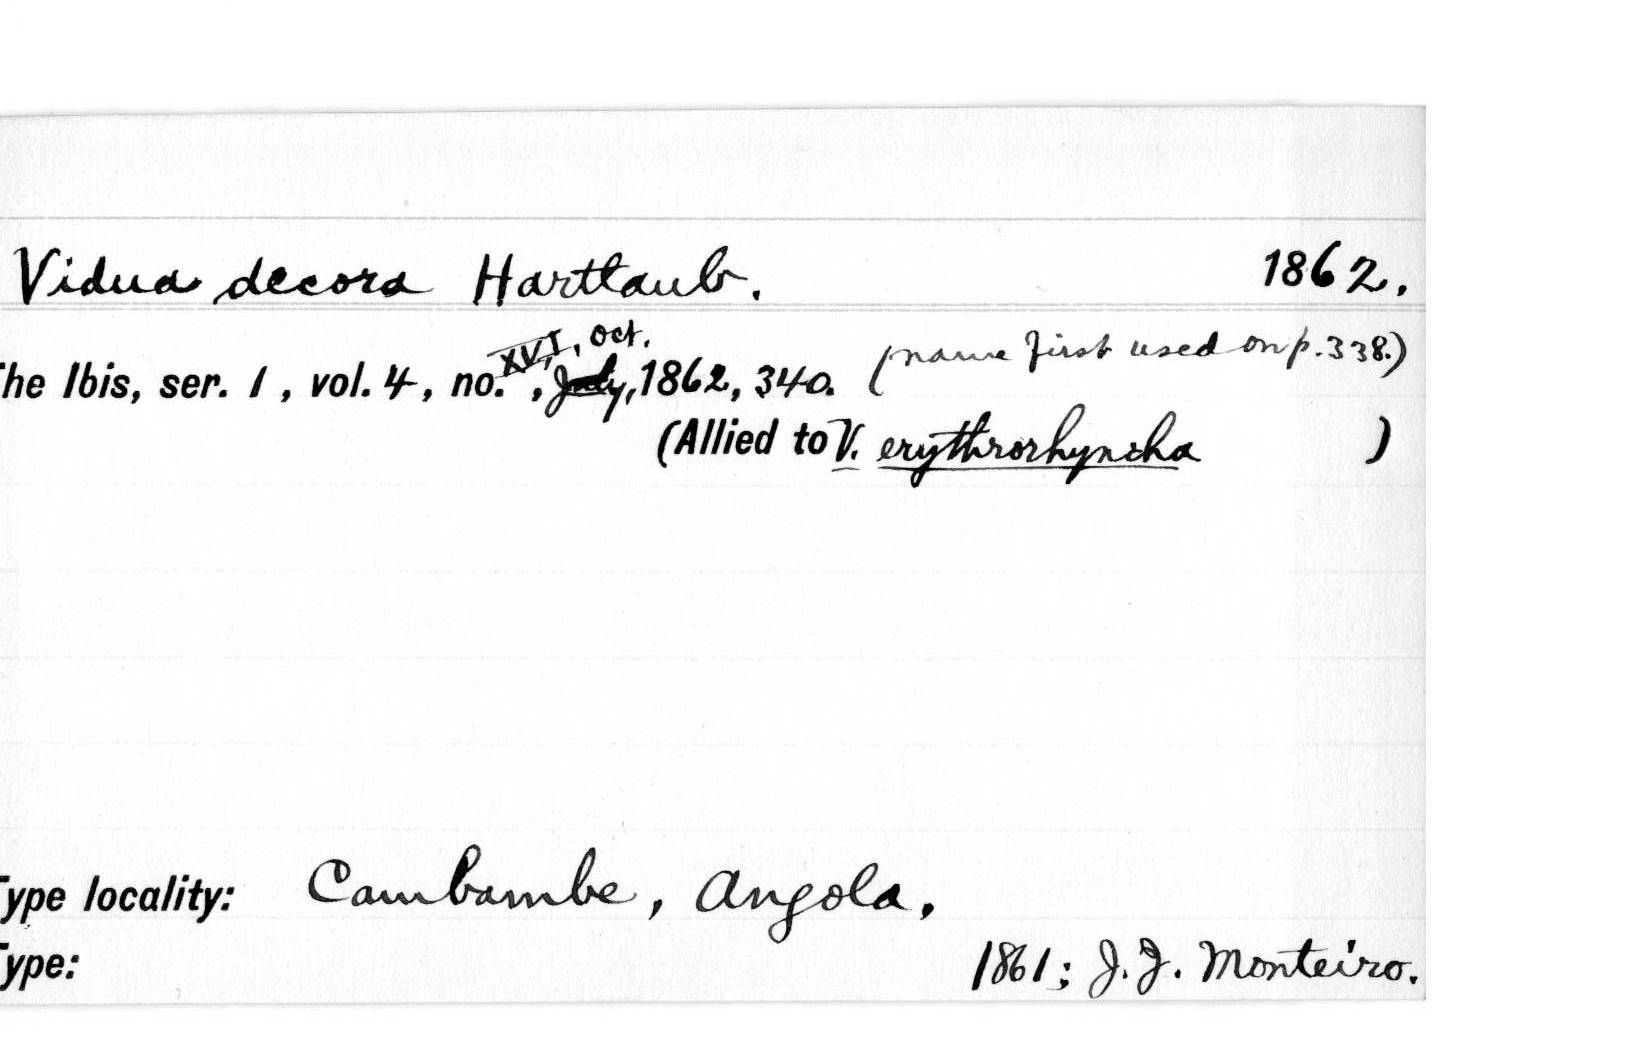 Vidua decora Hartlaub. 1862.
XVI, Oct.
he Ibis, ser. 1, vol. 4, no. , July, 1862, 340. (name first used on p. 338.)
(Allied to V. erythrorhyncha )
Type locality: Cambambe, Angola.
Type: 1861; J. J. Monteiro.